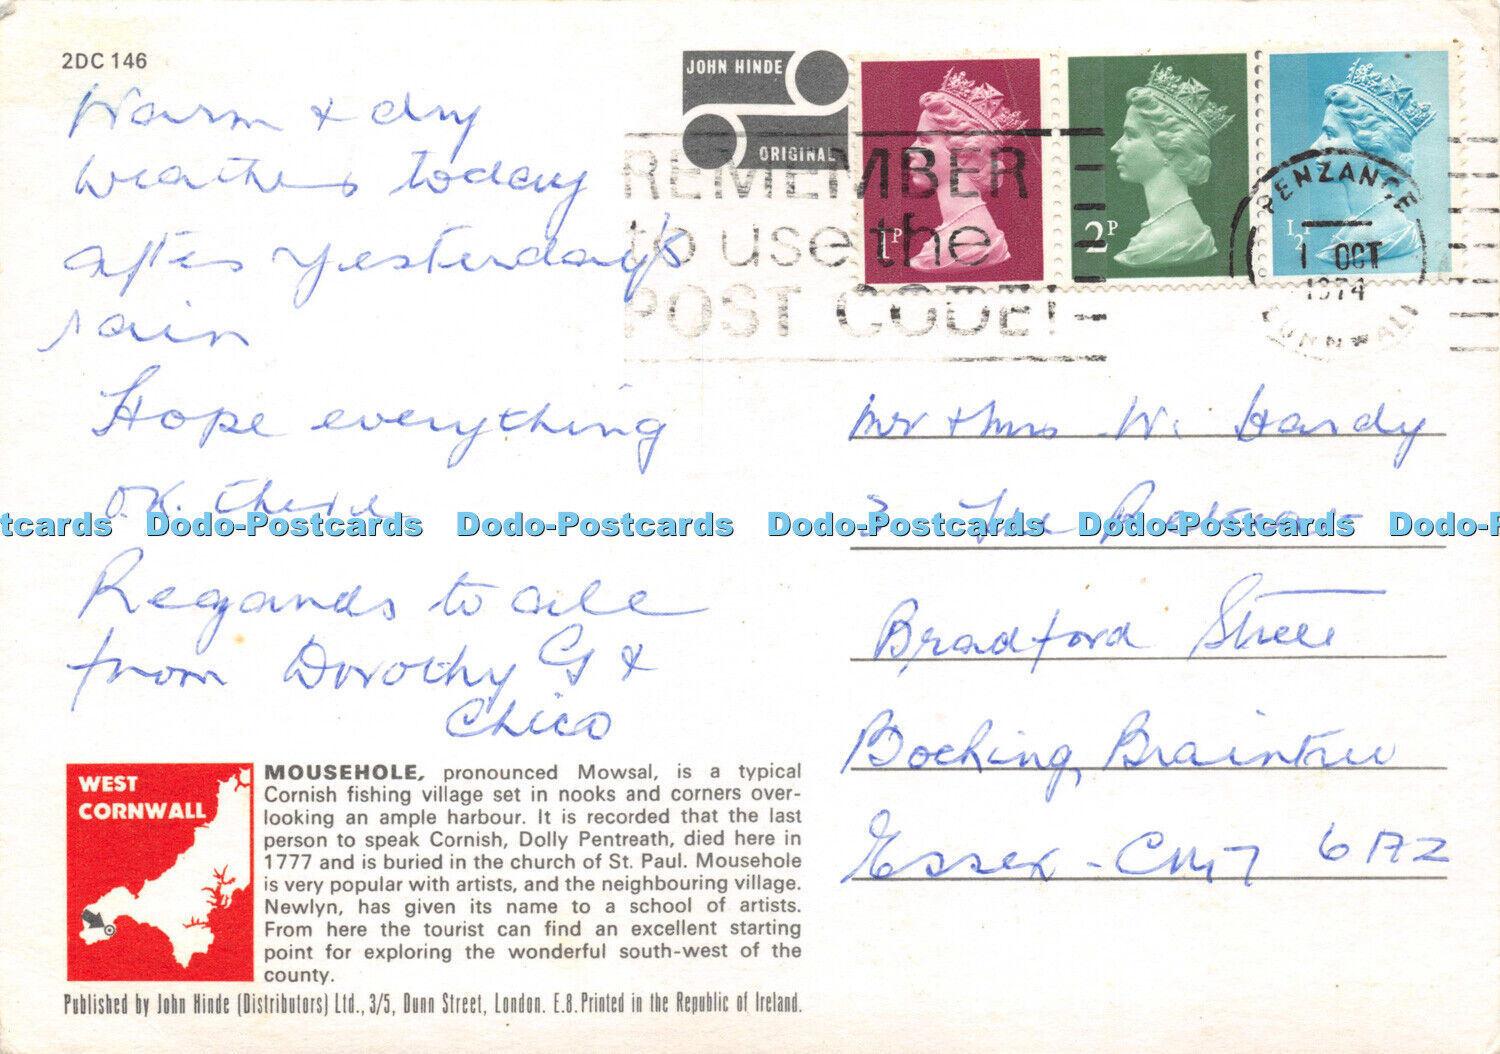 2DC 146
JOHN HINDE
ORIGINAL
REMEMBER
to use the
POST CODE!
1P
2P
½P
PENZANCE
1 OCT
1974
CORNWALL
Warm + dry
weather today
after yesterday's
rain
Hope everything
O.K. there
Regards to all
from Dorothy G &
Chico
Mr + Mrs W. Hardy
3 The
Bradford Street
Bocking, Braintree
Essex - CM7 6AZ
Dodo-Postcards Dodo-Postcards Dodo-Postcards Dodo-Postcards
WEST
CORNWALL
MOUSEHOLE, pronounced Mowsal, is a typical
Cornish fishing village set in nooks and corners over-
looking an ample harbour. It is recorded that the last
person to speak Cornish, Dolly Pentreath, died here in
1777 and is buried in the church of St. Paul. Mousehole
is very popular with artists, and the neighbouring village.
Newlyn, has given its name to a school of artists.
From here the tourist can find an excellent starting
point for exploring the wonderful south-west of the
county.
Published by John Hinde (Distributors) Ltd., 3/5, Dunn Street, London. E.8. Printed in the Republic of Ireland.